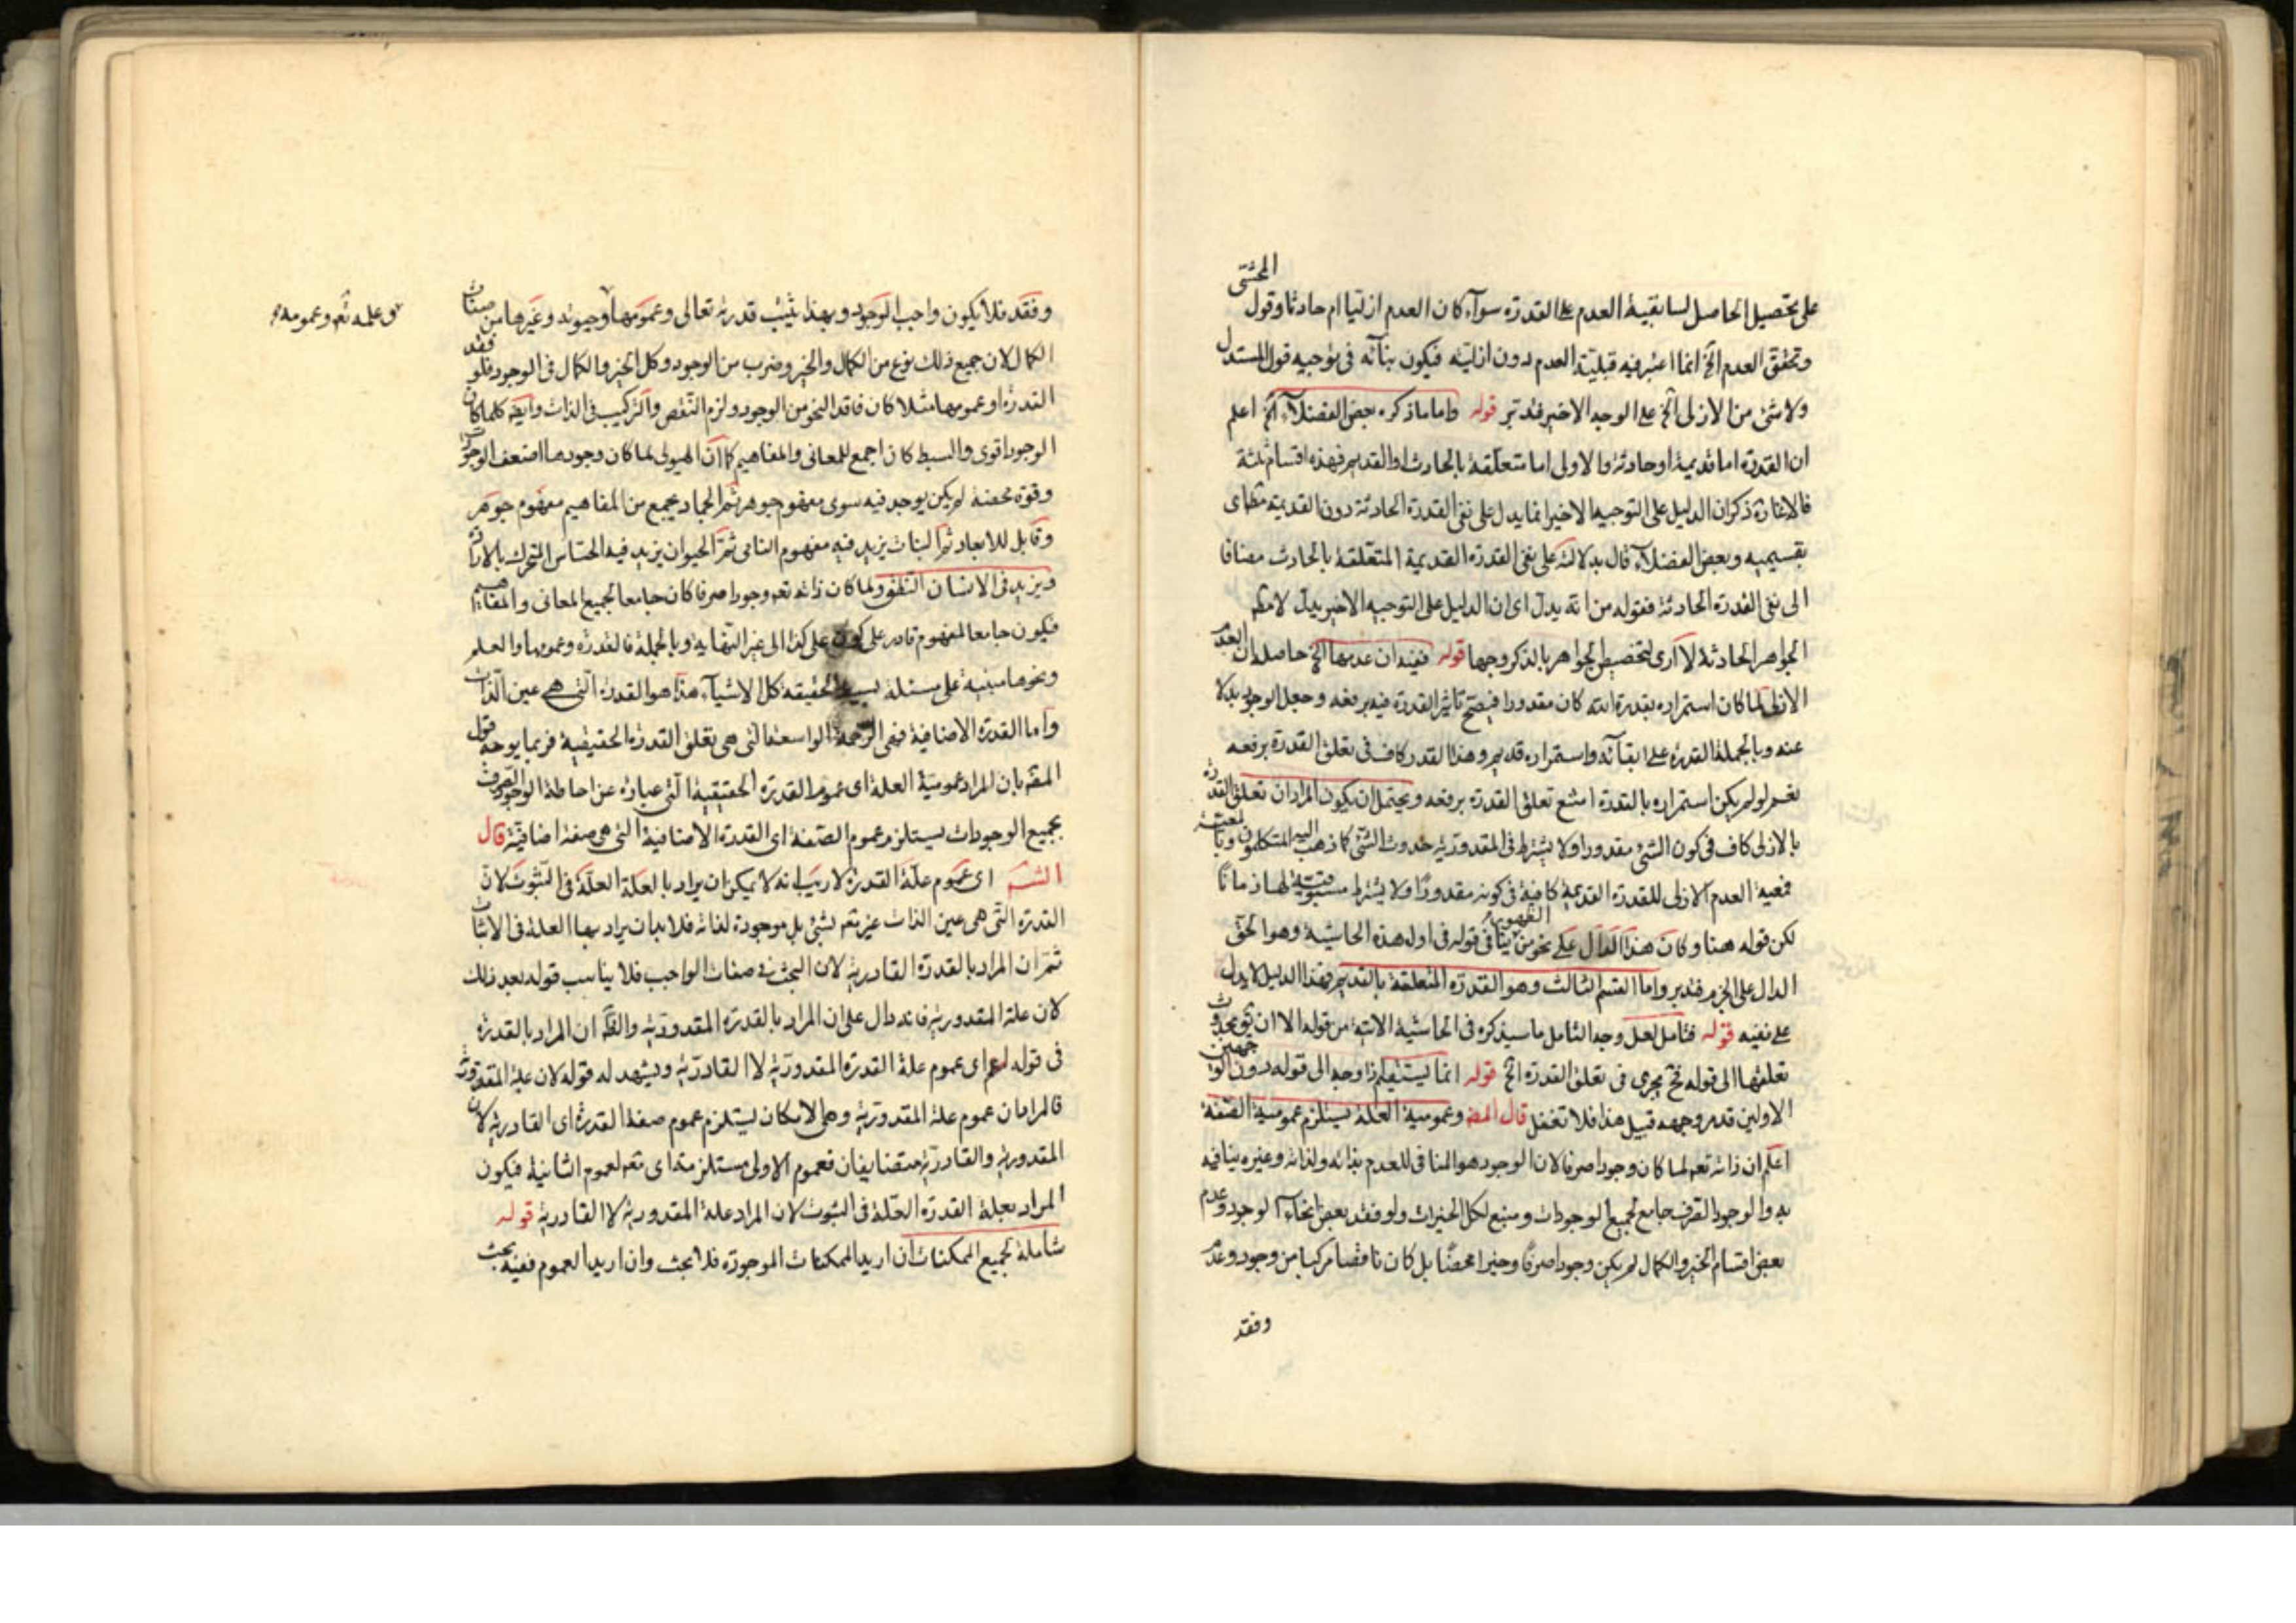 على تحصيل الحاصل لسابقية العدم على القدرة سواء كان العدم ازليا ام حادثا وقول المحشى
وتحقق العدم الخ انما اعتبر فيه قبلية العدم دون ازليته فيكون بنائه فى توجيه قول المستدل
ولا شئ من الازلى الخ على الوجه الاخير فتدبر قوله واما ما ذكره بعض الفضلاء الخ اعلم
ان القدرة اما قديمة او حادثة والاولى اما متعلقة بالحادث او القديم فهذه اقسام ثلثة
فالاغا ره ذكر ان الدليل على التوجيه الاخير انما يدل على نفى القدرة الحادثة دون القديمة
بقسيميه وبعض الفضلاء قال بدلالته على نفى القدرة القديمة المتعلقة بالحادث مضافا
الى نفى القدرة الحادثة فقوله من انه يدل اى ان الدليل على التوجيه الاخير يدل
الجواهر الحادثة لا ارى لتخصيص الجواهر بالذكر وجها قوله فيفيد ان عدمها الخ حاصله ان العدم
الازلى لما كان استمراره بقدرة الله كان مقدورا فيصح تاثير القدرة فيه برفعه وجعل الوجود بدلا
عنه وبالجملة القدرة على ابقائه واستمراره قديم وهذا القدر كاف فى تعلق القدرة برفعه
نعم لو لم يكن استمراره بالقدرة امتنع تعلق القدرة برفعه ويحتمل ان يكون المراد ان تعلق القدرة
بالازلى كاف فى كون الشئ مقدورا ولا يشترط فى المقدورية حدوث الشئ كما ذهب اليه المتكلمون
فمعية العدم الازلى للقدرة القديمة كافية فى كونه مقدورا ولا يشترط مسبوقيته لها زمانا
لكن قوله هنا وكان هذا الدال على نحو من ينافى قوله فى اول هذه الحاشية وهو الحق
الدال على الجزم فتدبر واما القسم الثالث وهو القدرة المتعلقة بالقديم فهذا الدليل لا يدل
على نفيه قوله فتامل لعل وجه التامل ما سيذكره فى الحاشية الاتية من قوله الا ان
تعلقها الى قوله نحو يجرى فى تعلق القدرة الخ قوله انما يستقيم اذا وجه الى قوله دون الوجهين
الاولين قد مر وجهه قبيل هذا فلا تغفل قال المص وعمومية العلة يستلزم عمومية الصفة
اعلم ان ذاته تعه لما كان وجودا صرفا لان الوجود هو المنافى للعدم بذاته ولذاته وغيره ينافيه
به والوجود الصرف جامع لجميع الوجودات ومنبع لكل الخيرات ولو فقد بعض انحاء الوجود وعدم
بعض اقسام الخير والكمال لم يكن وجودا صرفا وخيرا محضا بل كان ناقصا مركبا من وجود وعدم
وفقد
وفقد فلا يكون واجب الوجود وبهذا يثبت قدرته تعالى وعمومها وحيوته وغيرها من صفات
وعلمه تعه وعمومه
الكمال لان جميع ذلك نوع من الكمال والخير وضرب من الوجود وكل الخير والكمال فى الوجود فلو فقد
القدرة او عمومها مثلا كان فاقدا لنحو من الوجود ولزم النقص والتركيب فى الذات وايضه كلما كان
الوجود اقوى والبسط كان اجمع للمعانى والمفاهيم كما ان الهيولى لما كان وجودها اضعف الوجودات
وقوة محضة لم يكن يوجد فيه سوى مفهوم جوهر ثم الجماد يجمع من المفاهيم مفهوم جوهر
وقابل للابعاد ثم النبات يزيد فيه مفهوم النامى ثم الحيوان يزيد فيه الحساس المتحرك بالارادة
ويزيد فى الانسان النطق ولما كان ذاته تعه وجودا صرفا كان جامعا لجميع المعانى والمفاهيم
فيكون جامعا لمفهوم قادر على كون على كذا الى غير النهاية وبالجملة فالقدرة وعمومها والعلم
ونحوها مبنية على مسئلة بسيط الحقيقة كل الاشياء هذا هو القدرة التى هى عين الذات
واما القدرة الاضافية فهى الرحمة الواسعة التى هى تعلق القدرة الحقيقية فربما يوجه قول
المصه بان المراد عمومية العلة اى عموم القدرة الحقيقية التى عبارة عن احاطة الوجود الصرف
بجميع الوجودات يستلزم عموم الصفة اى القدرة الاضافية التى هى صفة اضافية قال
الشه اى عموم علة القدرة لا ريب انه لا يمكن ان يراد بالعلة العلة فى الثبوت لان
القدرة التى هى عين الذات غير تعه بشئ بل موجودة لذاته فلابد ان يراد بها العلة فى الاثبات
ثم ان المراد بالقدرة القادرية لان البحث فى صفات الواجب فلا يناسب قوله بعد ذلك
لان علة المقدورية فانه دال على ان المراد بالقدرة المقدورية والظه ان المراد بالقدرة
فى قوله اى عموم علة القدرة المقدورية لا القادرية ويشهد له قوله لان علة المقدورية
فالمراد ان عموم علة المقدورية وهى الامكان يستلزم عموم صفة القدرة اى القادرية لان
المقدورية والقادرية متضايفان فعموم الاولى مستلزمة اى تعه لعموم الثانية فيكون
المراد بعلة القدرة العلة فى الثبوت لان المراد علة المقدورية لا القادرية قوله
شاملة لجميع الممكنات ان اريد الممكنات الموجودة فلا بحث وان اريد العموم ففيه بحث